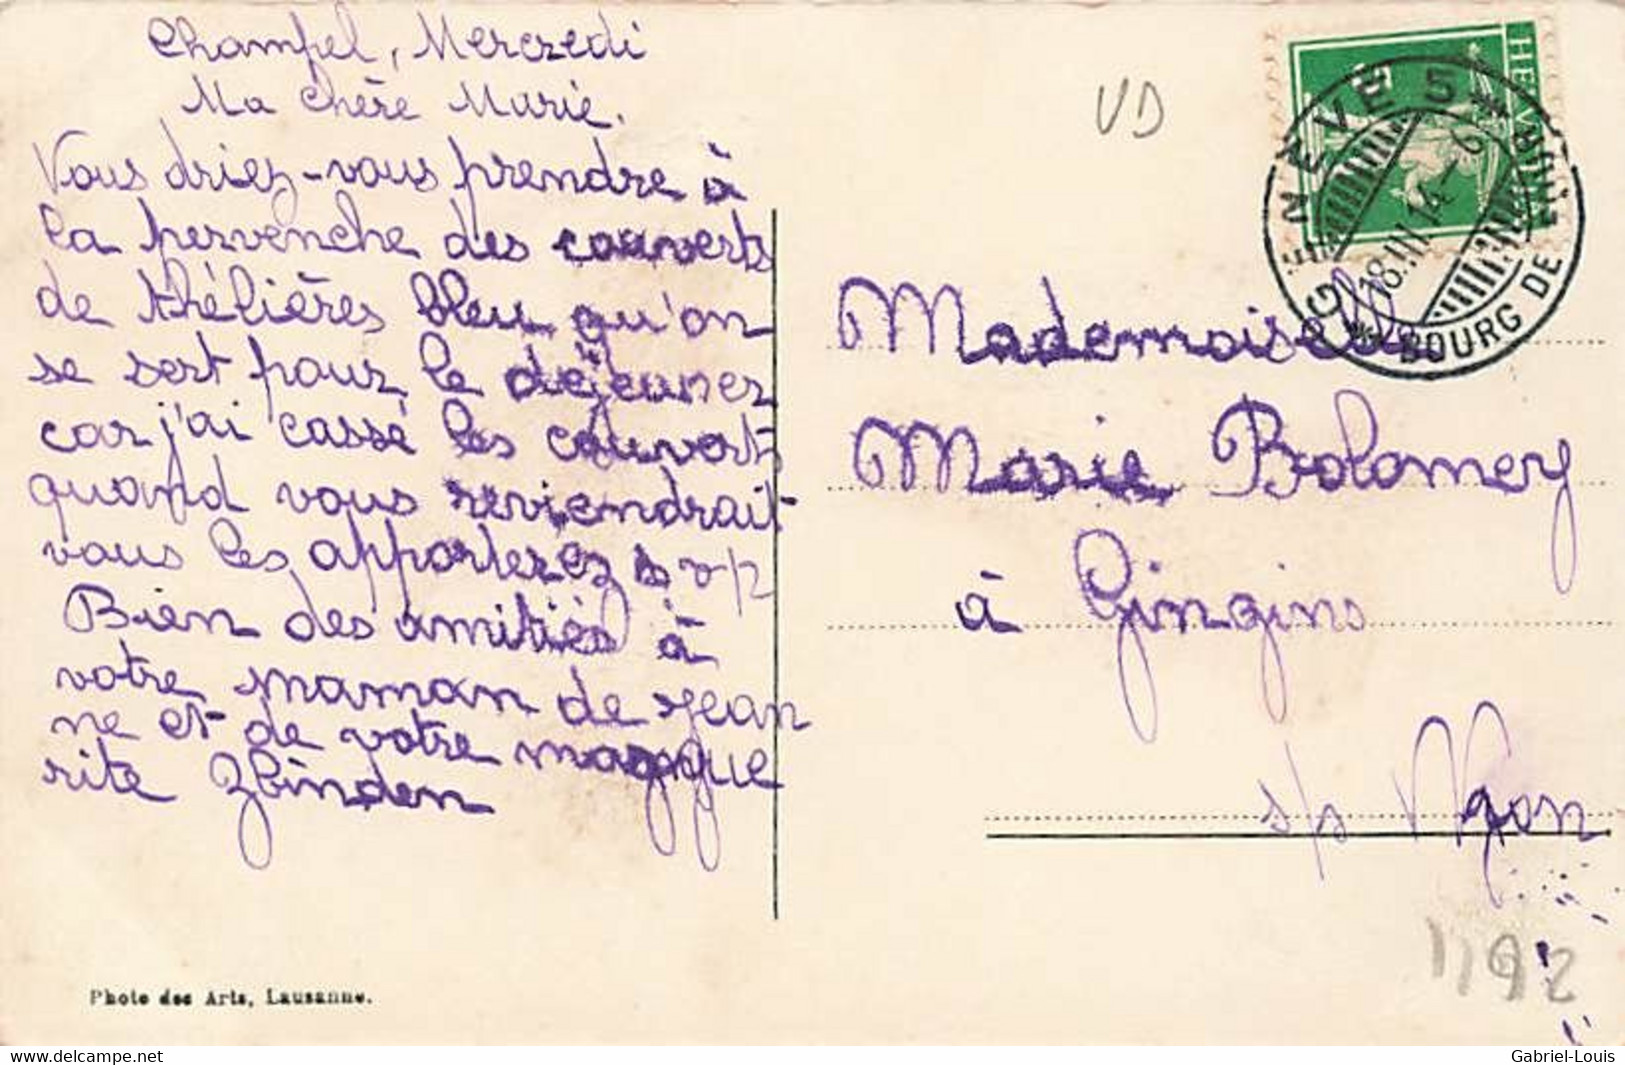 Champel, Mercredi
Ma chère Marie.
Vous driez-vous prendre à
la pervenche des couverts
de thélières bleu qu'on
se sert pour le déjeuner
car j'ai cassé les couverts
quand vous reviendrait
vous les apporterez s v p
Bien des amitiés à
votre maman de Jean
ne et de votre margue
rite Zbinden
Photo des Arts, Lausanne.
VD
HELV
GENÈVE 5
BOURG DE FOUR
18.III.14-6
Mademoiselle
Marie Bolomey
à Gingins
s/s Nyon
1192
www.delcampe.net
Gabriel-Louis